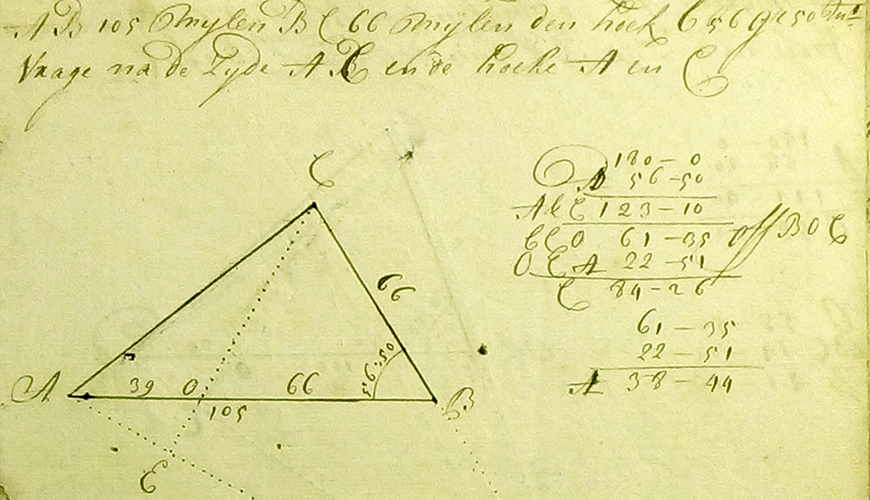 AB 105 Mylen BC 66 Mylen den hoek B 56 gr 50
Vrage na de Zyde AC en de hoeke A en C
C
66
56:50
A
39
O
66
B
105
E
180 - 0
56 - 50
A & C 123 - 10
BCO 61 - 35 off BOC
OCA 22 - 51
C 84 - 26
61 - 35
22 - 51
A 38 - 44